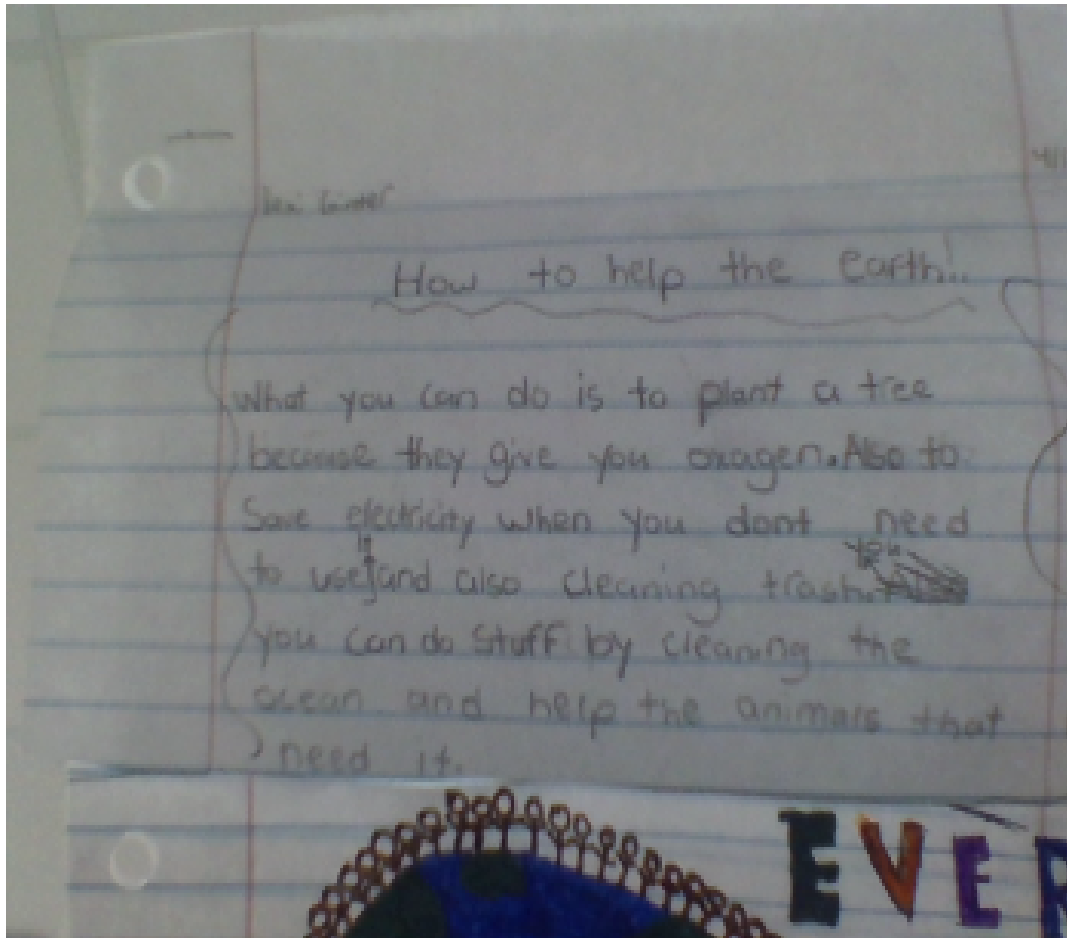 How to help the earth!!
What you can do is to plant a tree
because they give you oxagen. Also to
Save electricity when you dont need
to use it and also cleaning trash.
you can do stuff by cleaning the
ocean and help the animals that
need it.
EVER